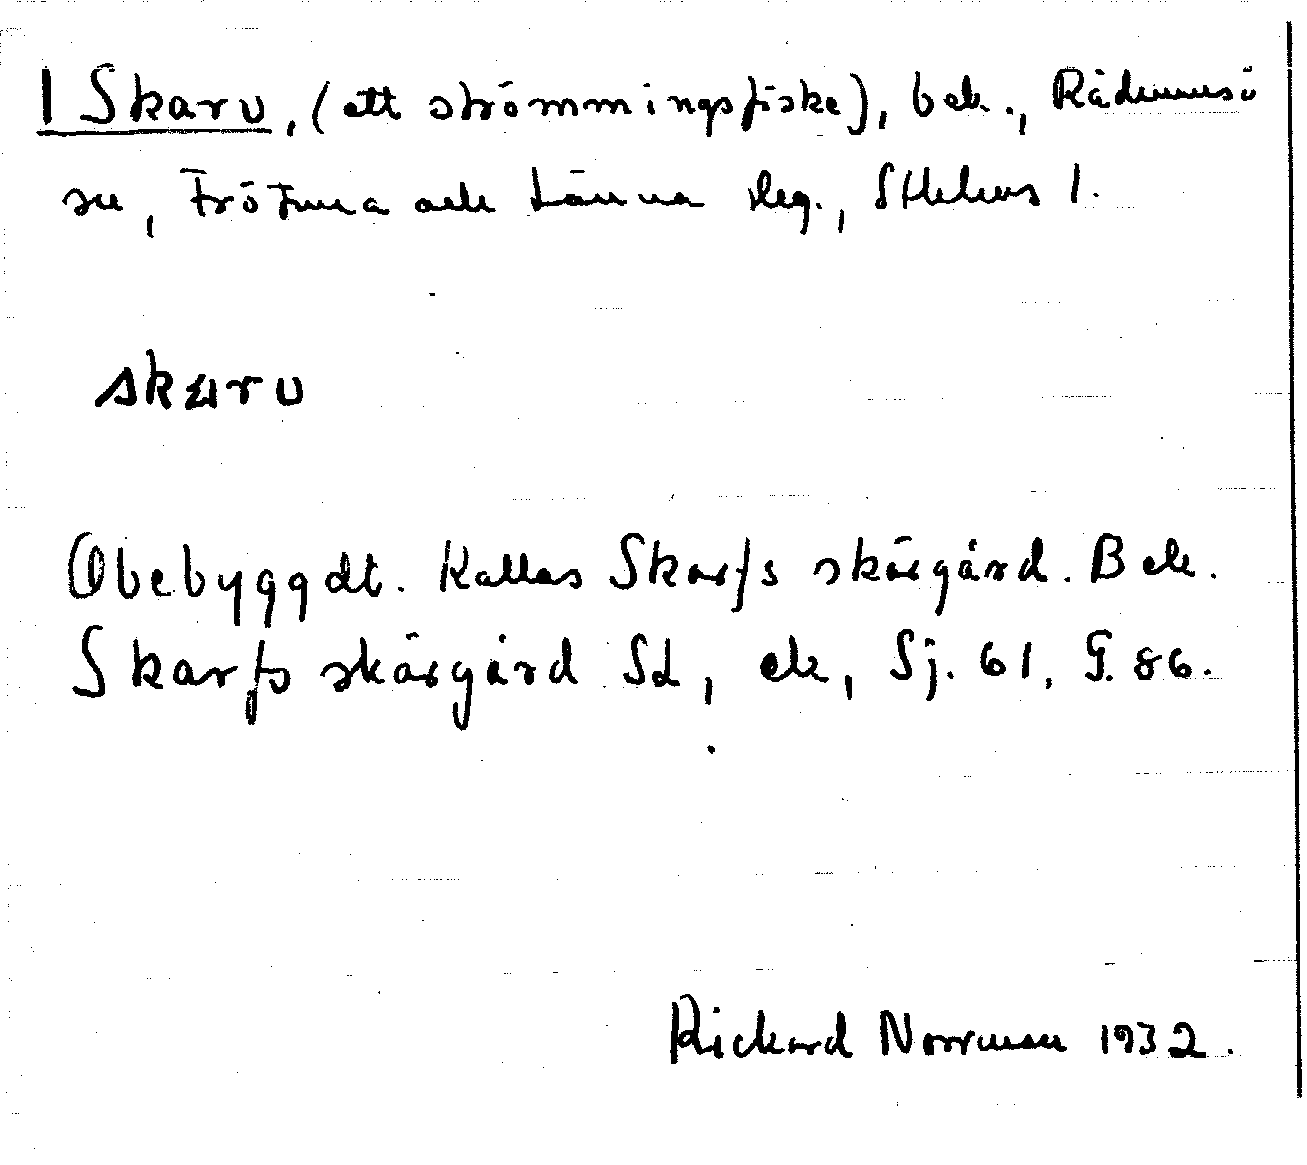 1 Skarv, (ett strömmingsfiske), bek., Rådmansö
sn, Frötuna och Länna skg., Sthlms l.
skarv
Obebyggdt. Kallas Skarfs skärgård. Bek.
Skarfs skärgård Sd, ek, Sj. 61, G. 86.
Rickard Norrman 1932.